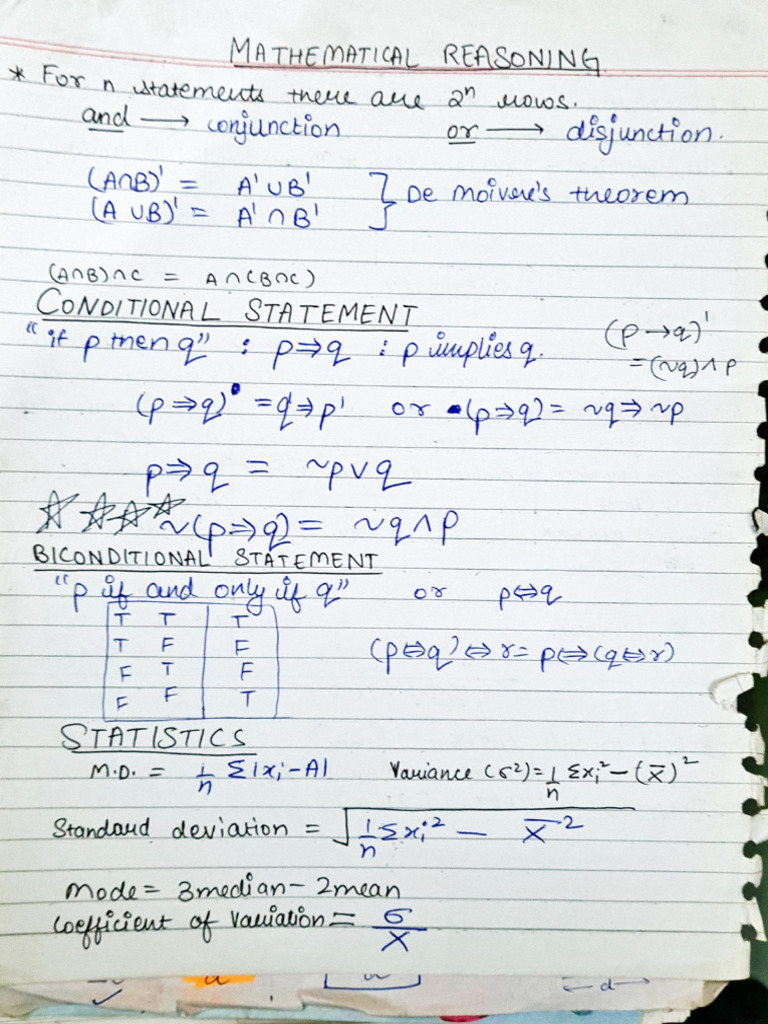 MATHEMATICAL REASONING
* For n statements there are 2ⁿ rows.
and → conjunction or → disjunction.
(A∩B)' = A' ∪ B'
(A ∪B)' = A' ∩ B' } De moivere's theorem
(A∩B)∩C = A∩(B∩C)
CONDITIONAL STATEMENT
"if p then q" : p⇒q : p implies q.
(p→q)'
= (~q)∧p
(p⇒q) = q'⇒p' or (p⇒q) = ~q⇒~p
p⇒q = ~p∨q
☆☆☆☆ ~(p⇒q) = ~q∧p
BICONDITIONAL STATEMENT
"p if and only if q" or p⇔q
T T T
T F F
F T F
F F T
(p⇔q)⇔r = p⇔(q⇔r)
STATISTICS
M.D. = 1/n Σ|xᵢ-A| Variance (σ²) = 1/n Σxᵢ² - (x̄)²
Standard deviation = √(1/n Σxᵢ² - x̄²)
Mode = 3median - 2mean
Coefficient of variation = σ/X
d